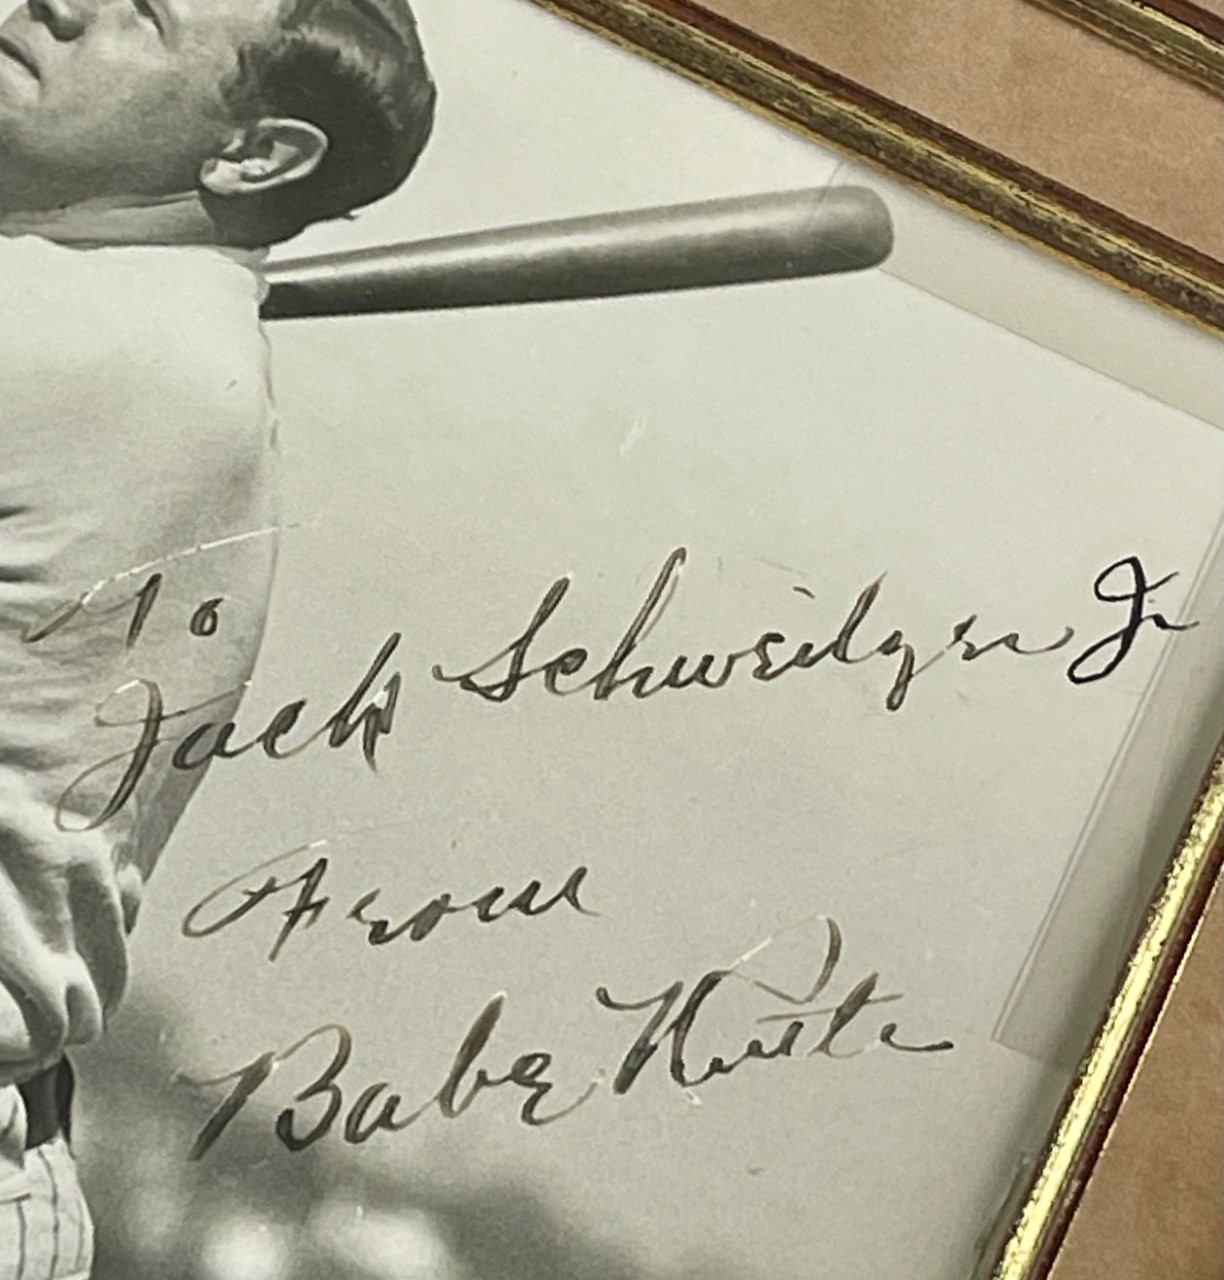 To
Jack Schweitzer Jr
From
Babe Ruth